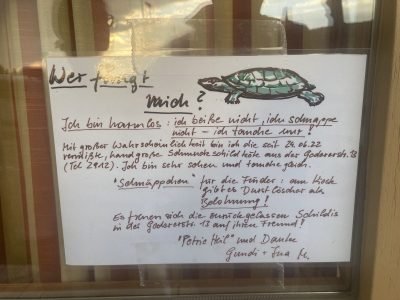 Wer fängt
mich?
Ich bin harmlos: ich beiße nicht, ich schnappe
nicht – ich tauche nur!
Mit großer Wahrscheinlichkeit bin ich die seit 24.06.22
vermißte, handgroße Schmuckschildkröte aus der Godererstr. 13
(Tel 2912). Ich bin sehr scheu und tauche gleich.
"Schnäppchen" für die Finder: am Kiosk
gibt es Durstlöscher als
Belohnung!
Es freuen sich die zurückgelassenen Schildis
in der Godererstr. 13 auf ihren Freund!
"Petri Heil" und Danke
Gundi + Ina M.